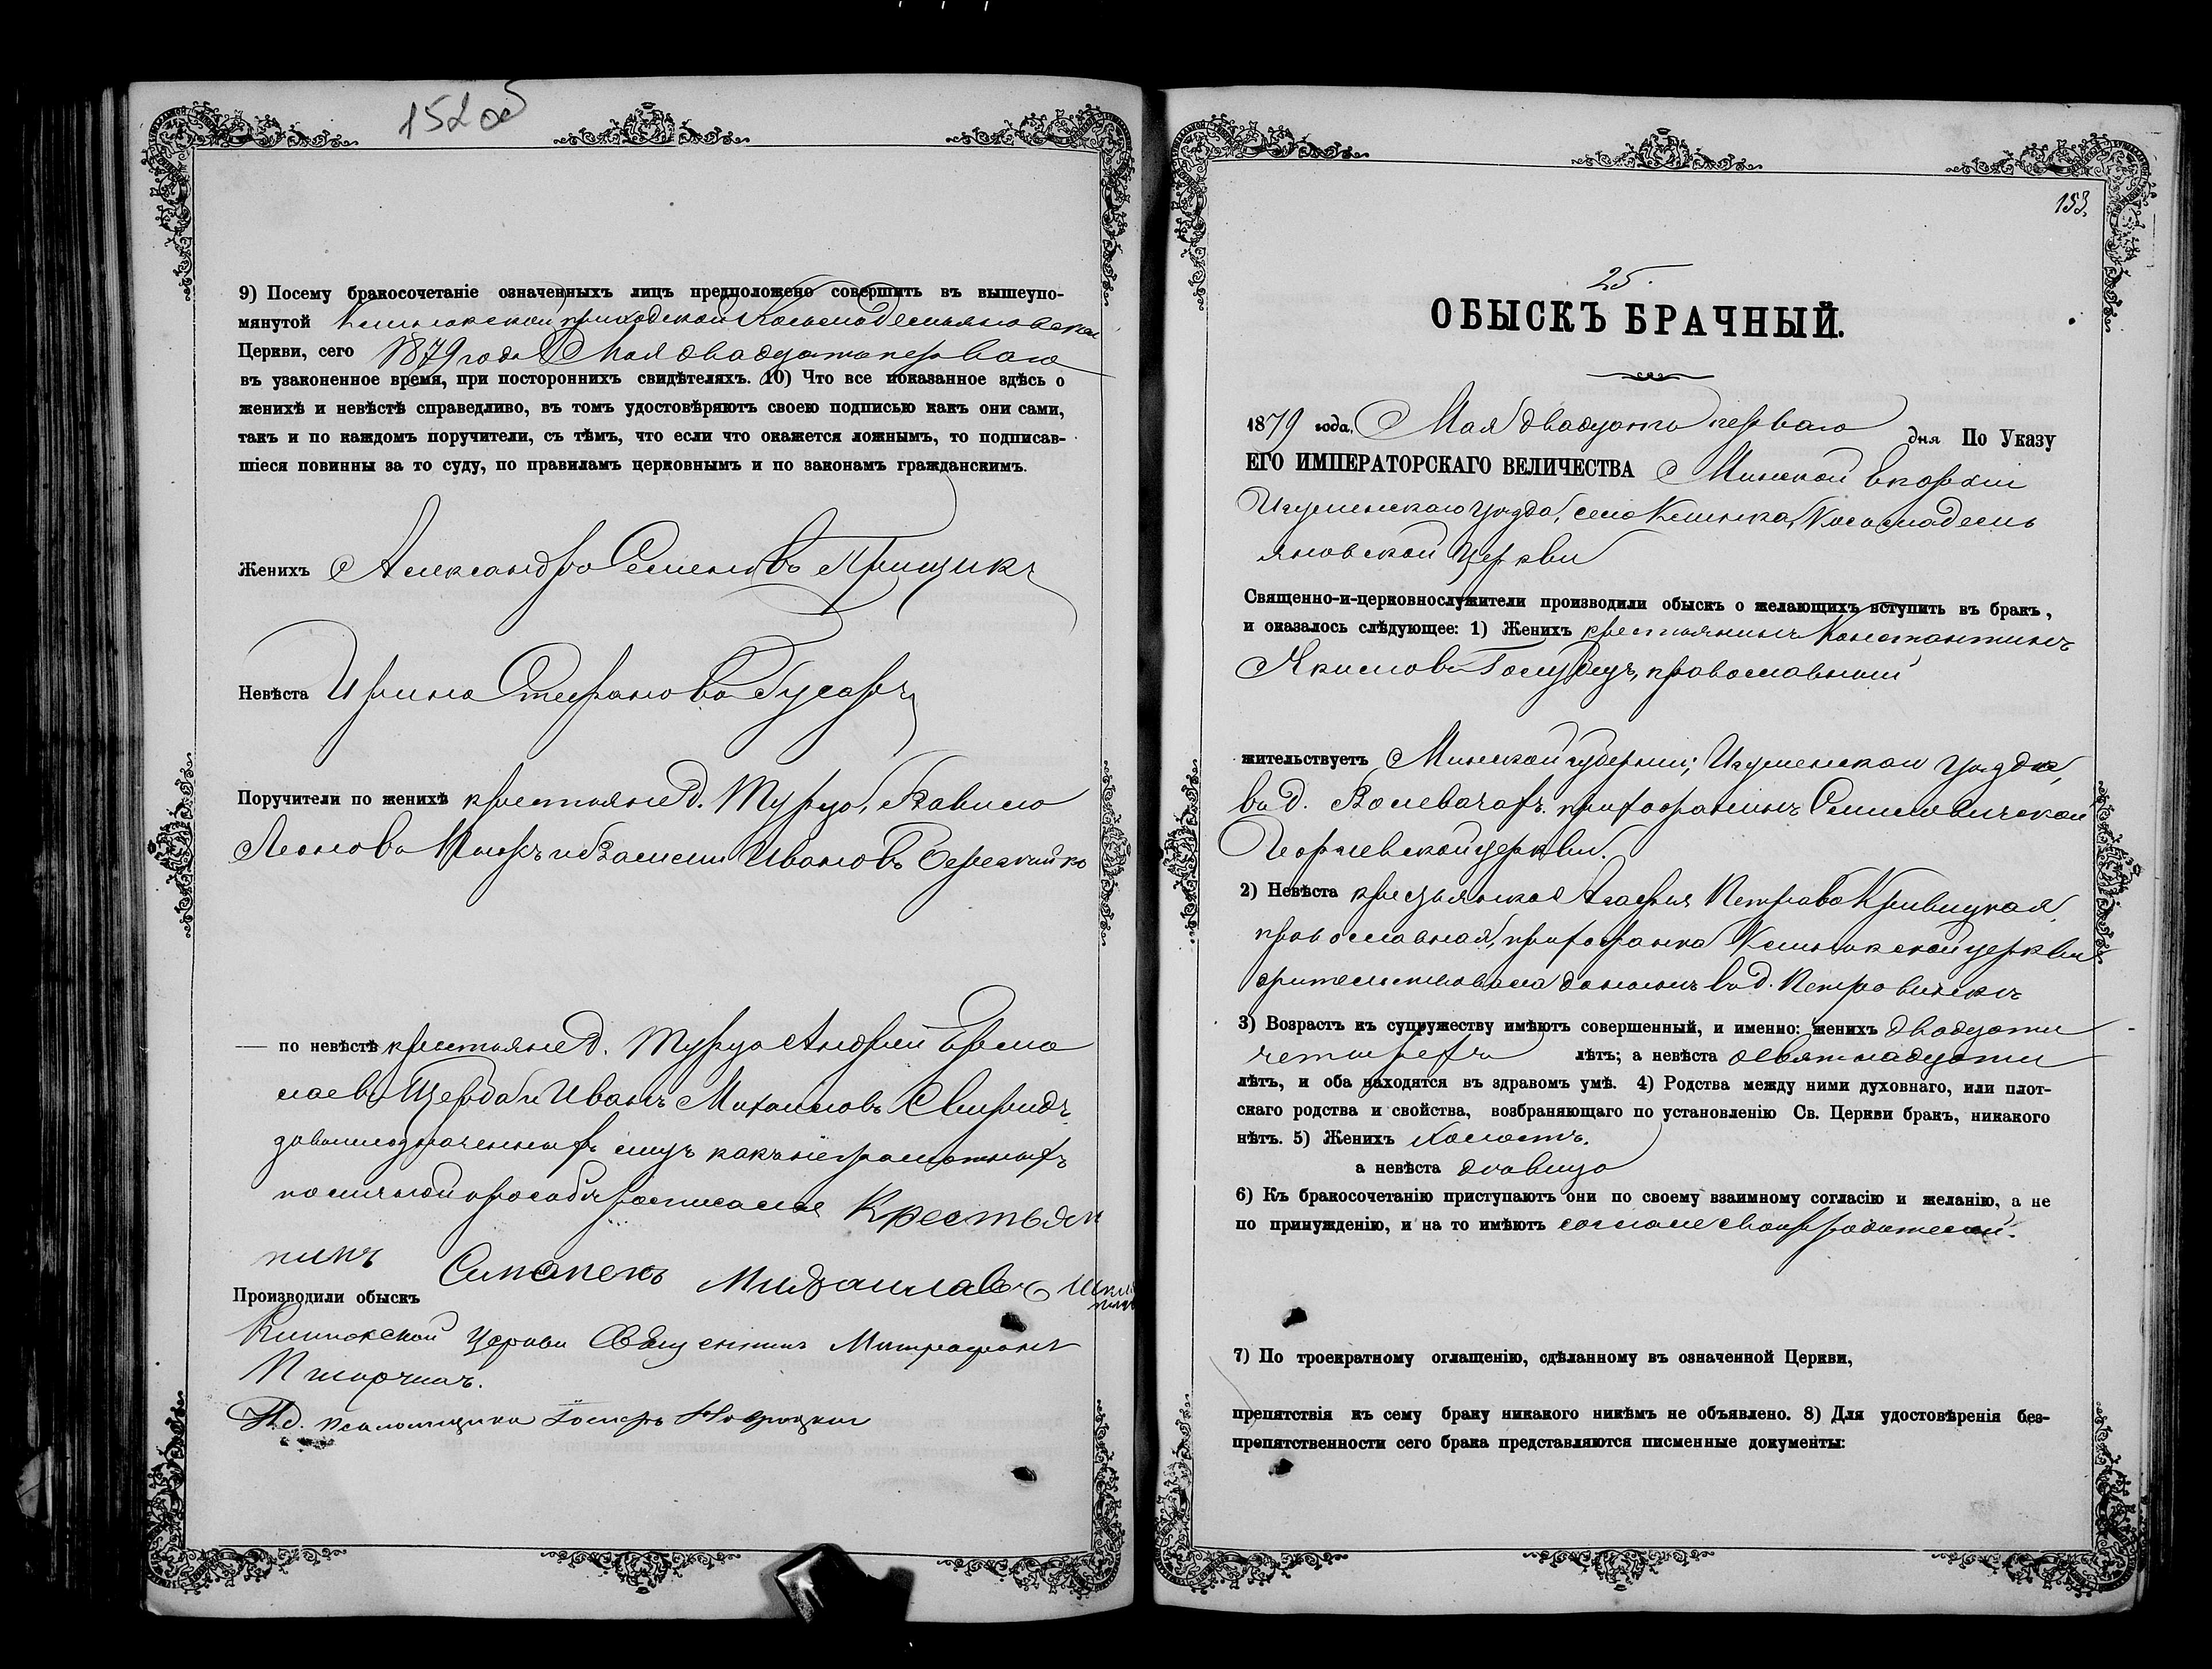 152 об
9) Посему бракосочетаніе означенныхъ лицъ предположено совершить въ вышеупо-
мянутой Клинокской приходской Космодемьяновской
Церкви, сего 1879 года Мая двадцать перваго
въ узаконенное время, при постороннихъ свидѣтеляхъ. 10) Что все показанное здѣсь о
женихѣ и невѣстѣ справедливо, въ томъ удостовѣряютъ своею подписью какъ они сами,
такъ и по каждомъ поручители, съ тѣмъ, что если что окажется ложнымъ, то подписав-
шіеся повинны за то суду, по правиламъ церковнымъ и по законамъ гражданскимъ.
Женихъ Александръ Семеновъ Прищикъ
Невѣста Ирина Стефанова Гусаръ
Поручители по женихѣ крестьяне д. Турца, Вавило
Леоновъ и Василій Ивановъ
— по невѣстѣ крестьяне д. Турца Андрей Ермо
лаевъ Щерба и Иванъ Михаиловъ Свиридъ
за вышеозначенныхъ лицъ какъ неграмотныхъ
по личной просьбѣ росписался Крестьян
нинъ Михаилавъ
Производили обыскъ
Клинокской Церкви Священникъ Митрофанъ
И.д. псаломщика
153.
25.
ОБЫСКЪ БРАЧНЫЙ.
1879 года, Мая двадцать перваго дня По Указу
ЕГО ИМПЕРАТОРСКАГО ВЕЛИЧЕСТВА Минской Епархіи
Игуменскаго уѣзда, села Клинка, Космодемь
яновской Церкви
Священно-и-церковнослужители производили обыскъ о желающихъ вступить въ бракъ,
и оказалось слѣдующее: 1) Женихъ крестьянинъ Константинъ
Якимовъ Голубецъ, православный
жительствуетъ Минской губерніи, Игуменскаго уѣзда,
въ д. Волевачахъ прихожанинъ Омеловичской
Георгіевской церкви.
2) Невѣста крестьянка Агафья Петрова Кривицкая
православная, прихожанка Клинокской церкви
жительствовала доселѣ въ д.
3) Возрастъ къ супружеству имѣютъ совершенный, и именно: женихъ двадцати
четырехъ лѣтъ; а невѣста девятнадцати
лѣтъ, и оба находятся въ здравомъ умѣ. 4) Родства между ними духовнаго, или плот-
скаго родства и свойства, возбраняющаго по установленію Св. Церкви бракъ, никакого
нѣтъ. 5) Женихъ холостъ.
а невѣста дѣвица
6) Къ бракосочетанію приступаютъ они по своему взаимному согласію и желанію, а не
по принужденію, и на то имѣютъ согласіе своихъ родителей.
7) По троекратному оглашенію, сдѣланному въ означенной Церкви,
препятствія къ сему браку никакого никѣмъ не объявлено. 8) Для удостовѣренія без-
препятственности сего брака представляются писменные документы: